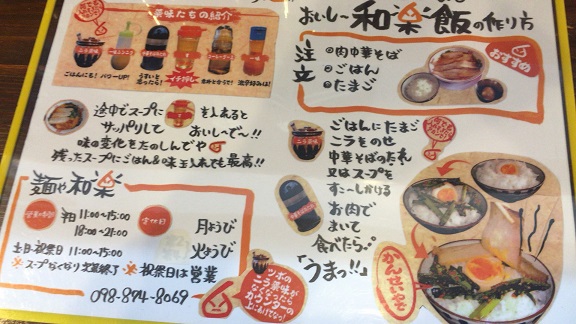 薬味たちの紹介
ごはんにも!
パワーUP!
うすいと思ったら!
イチ押し
おいし〜和楽飯の作り方
注文
①肉中華そば
②ごはん
③たまご
おすすめ
途中でスープに
を入れると
サッパリして
おいし〜で〜!!
味の変化をたのしんでや
残ったスープにごはん&味玉入れても最高!!
ごはんにたまご
ニラをのせ
中華そばのたれ
又はスープを
すこ〜しかける
お肉で
まいて
食べたら
「うまっ!!」
かんせいやぞ
麺や和楽
営業時間
平日 11:00~15:00
18:00~21:00
土日・祝祭日 11:00~15:00
※スープなくなり次第終了
定休日
月ようび
火ようび
※祝祭日は営業
098-874-8069
ツボの
ニラ薬味が
なくなったら
カウンターの
上にあげてなっ!